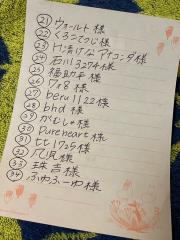 ㉑ウォールト様
㉒くろごまくじ様
㉓片清けなアナコンダ様
㉔石川3274様
㉕福助平様
㉖フォ8様
㉗beru1122様
㉘bhd様
㉙がむしゃ様
㉚Pureheart様
㉛tt1725様
㉜尺沢様
㉝珠吉様
㉞ふわふーわ様